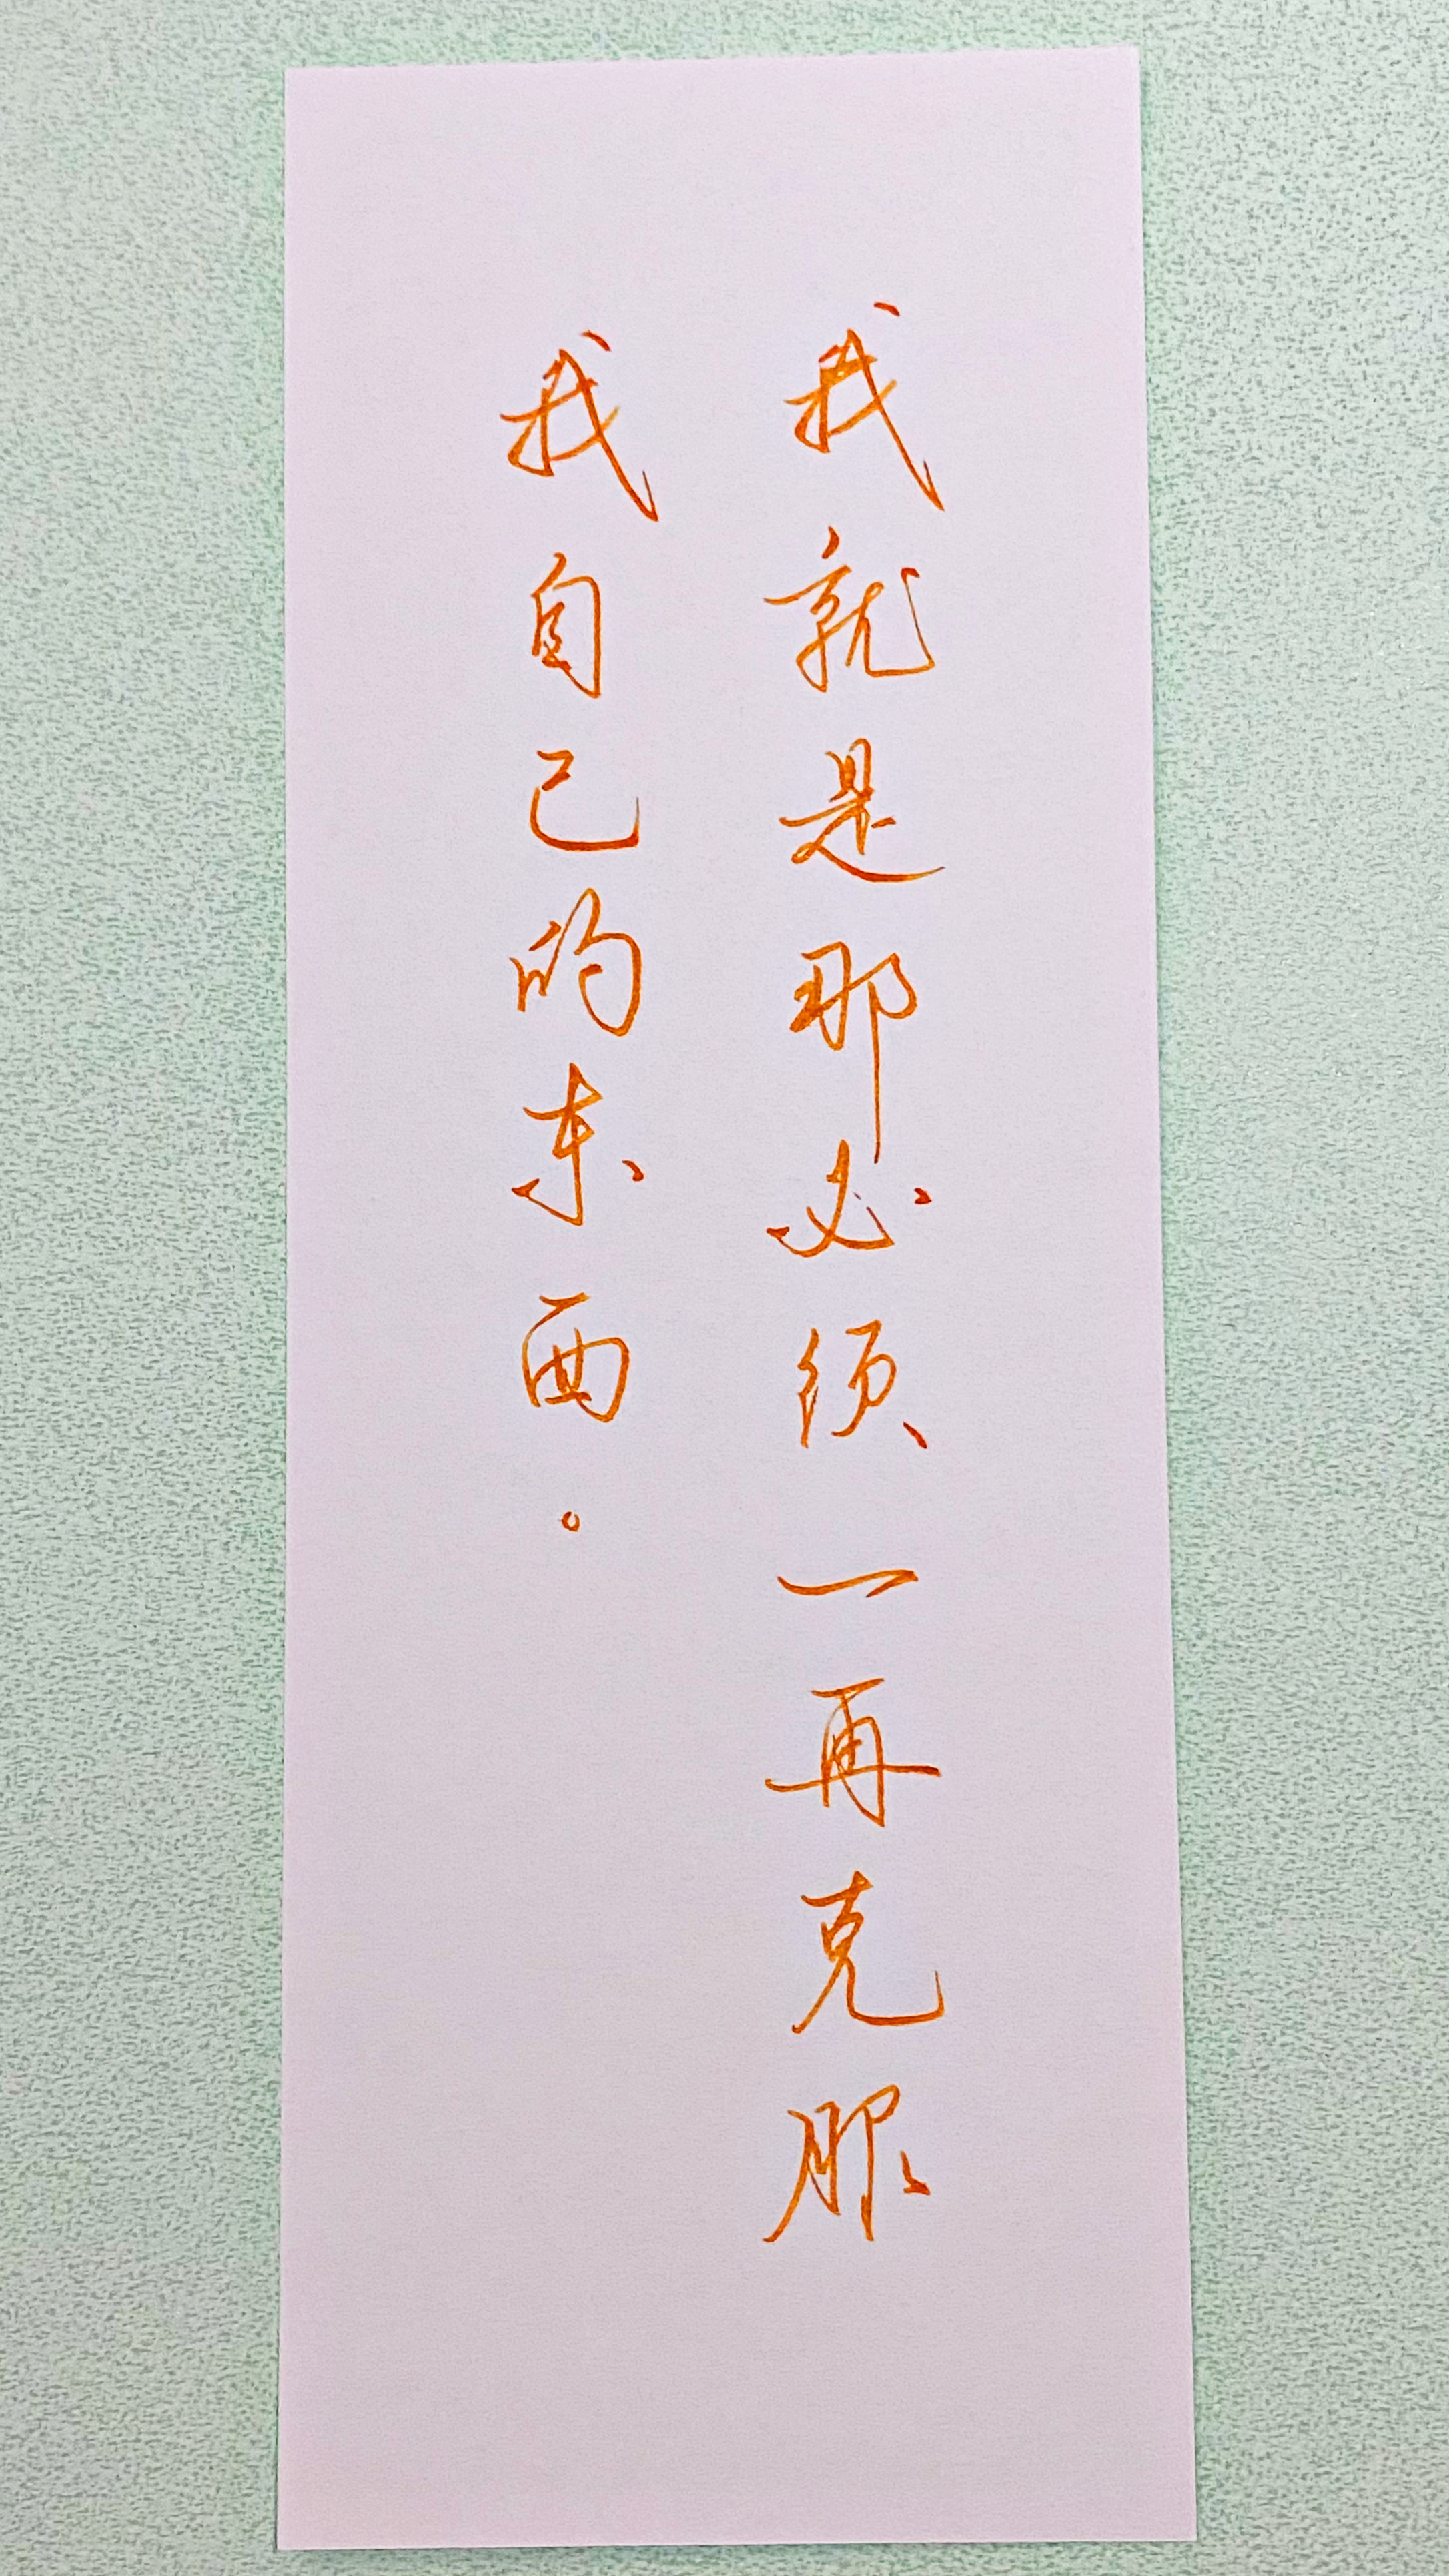 我就是那必须一再克服
我自己的东西。